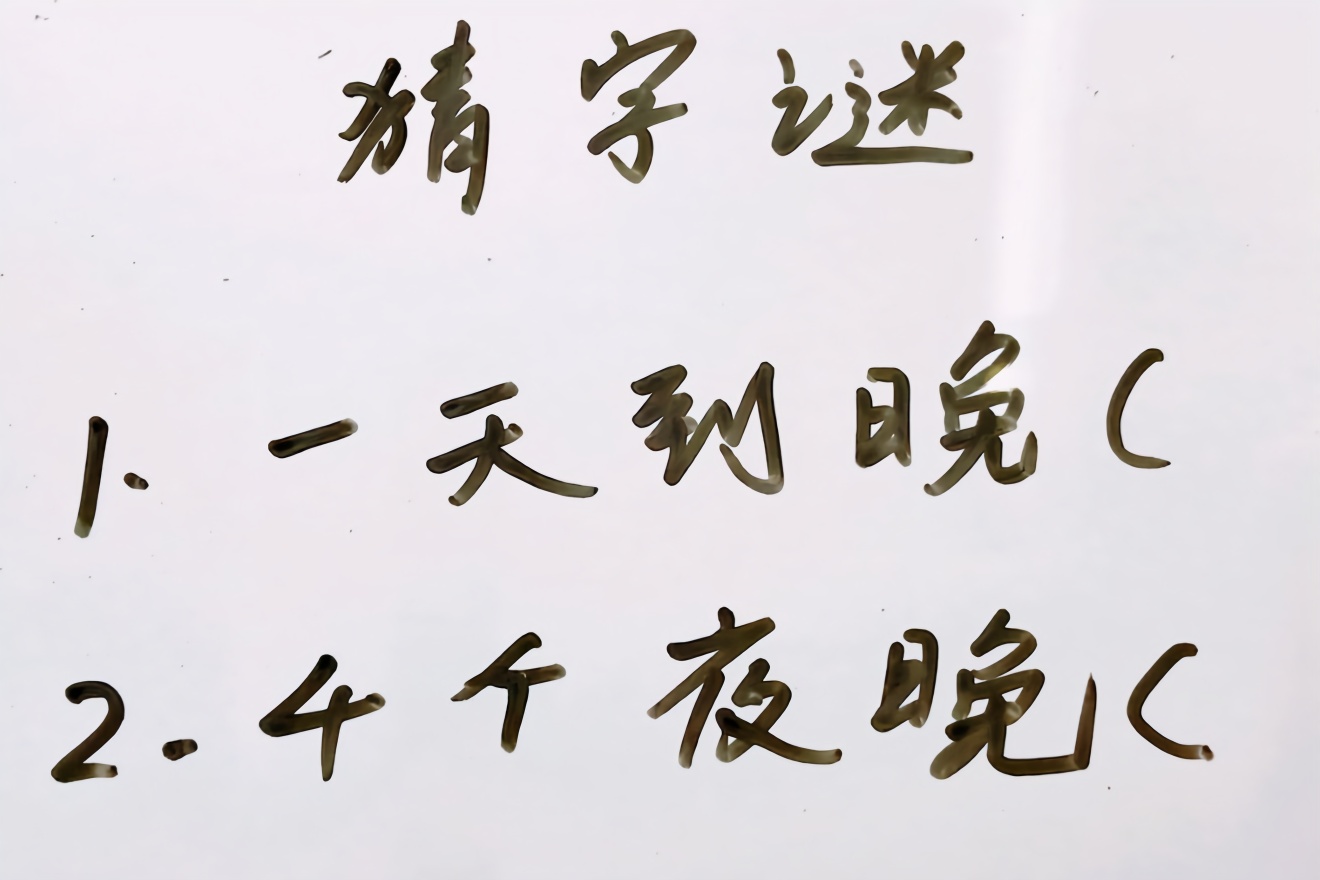 猜字谜
1. 一天到晚(
2. 4个夜晚(